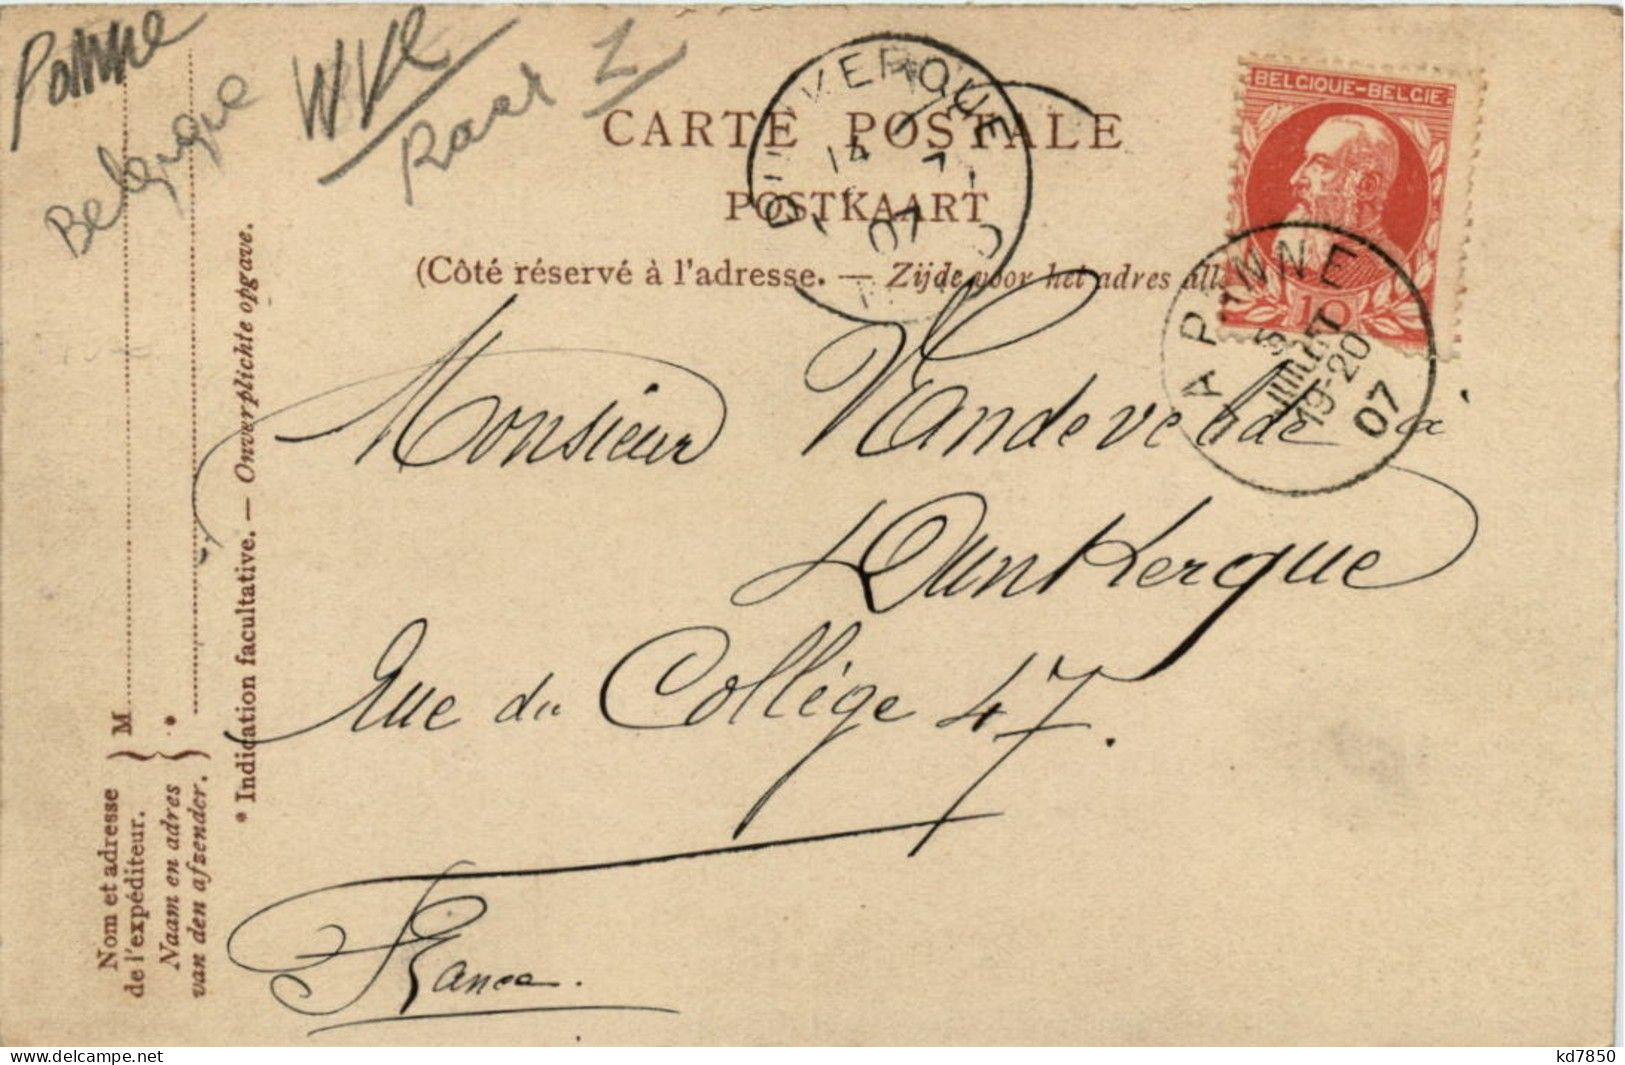 Panne
Belgique
WVl
CARTE POSTALE
POSTKAART
(Côté réservé à l'adresse. — Zijde voor het adres all
BELGIQUE-BELGIE
10
DUNKERQUE
14 7
07
LAPANNE
JUILLET
19-20
07
Monsieur Vandevelde à
Dunkerque
Rue du Collège 47.
France.
M
*
Nom et adresse
de l'expéditeur.
Naam en adres
van den afzender.
* Indication facultative. — Onverplichte opgave.
www.delcampe.net
kd7850